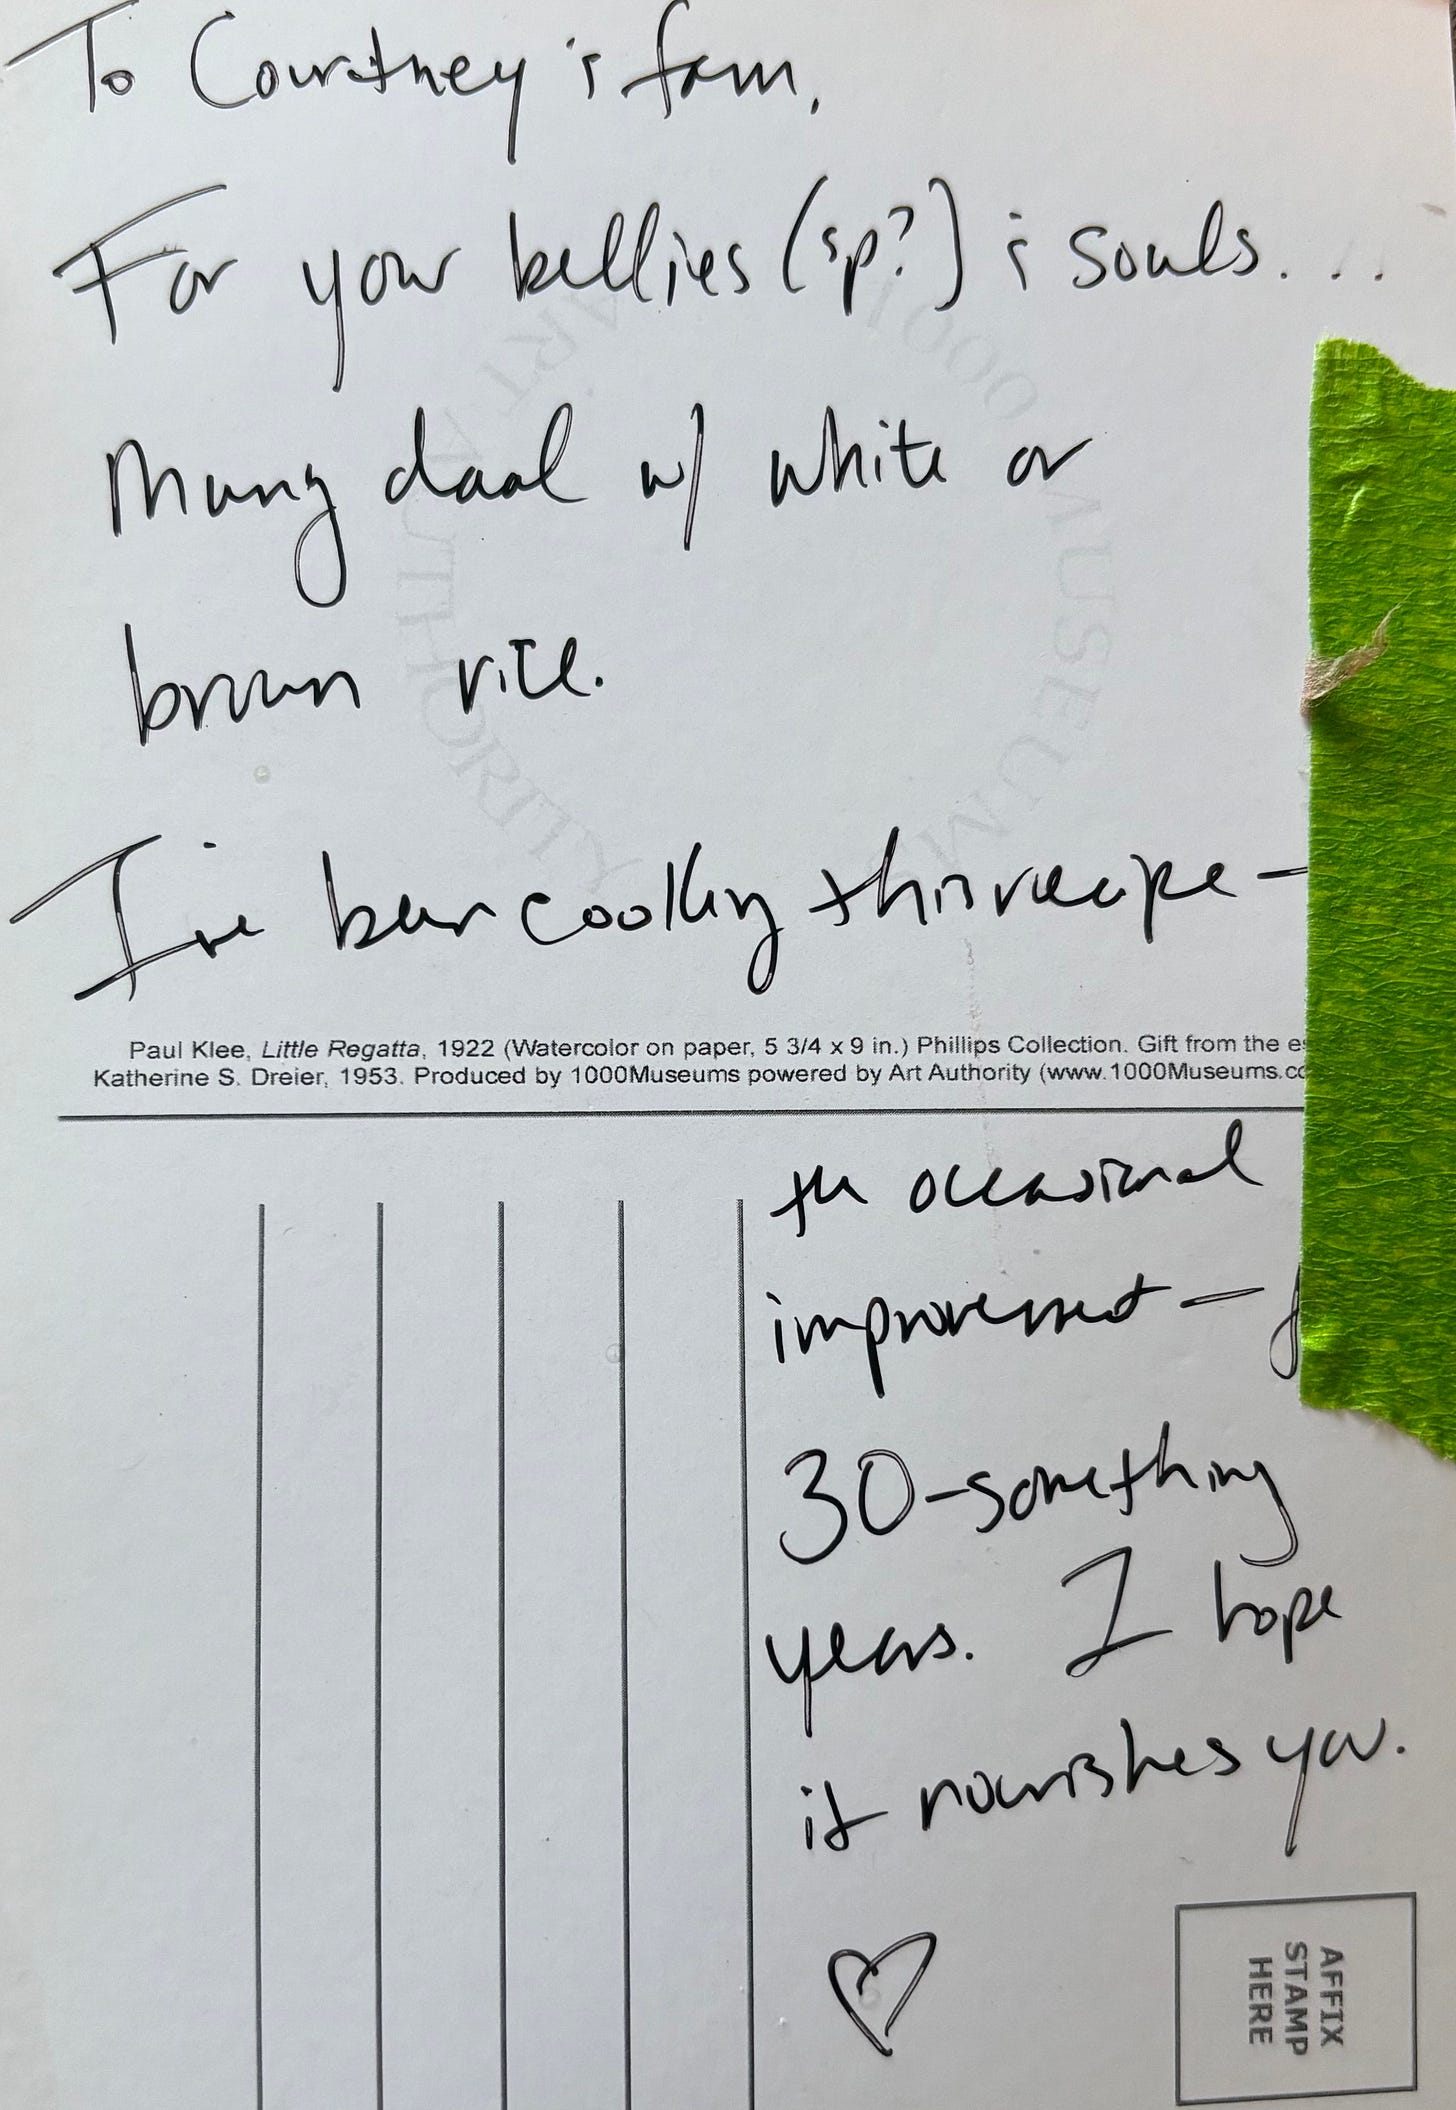 To Courtney & fam,
For your bellies (sp?) & souls...
Mung daal w/ white or
brown rice.
I've been cooking this recipe –
Paul Klee, Little Regatta, 1922 (Watercolor on paper, 5 3/4 x 9 in.) Phillips Collection. Gift from the
Katherine S. Dreier, 1953. Produced by 1000Museums powered by Art Authority (www.1000Museums.co
the occasional
improvement –
30-something
years. I hope
it nourishes you.
AFFIX
STAMP
HERE
1000 MUSEUMS
ART AUTHORITY